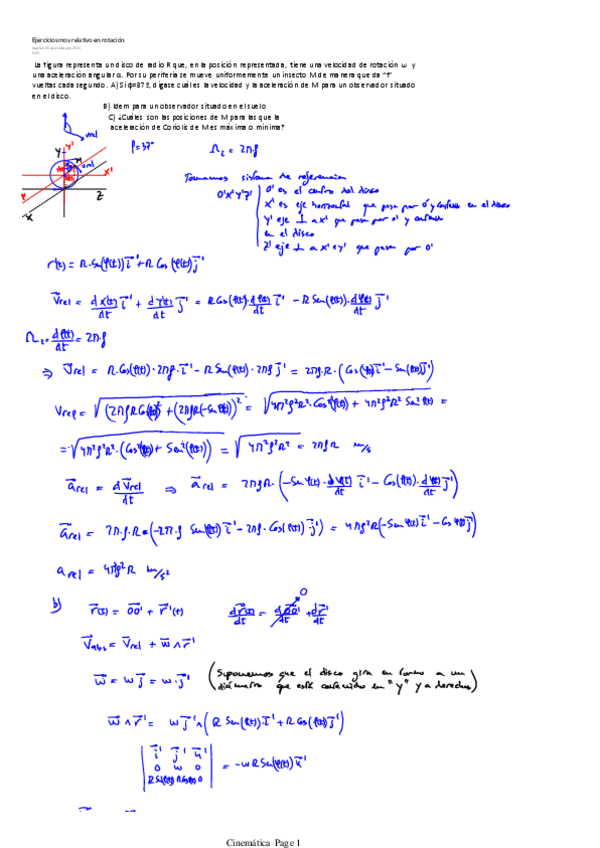 Ejercicios mov relativo en rotación
La figura representa un disco de radio R que, en la posición representada, tiene una velocidad de rotación ω y
una aceleración angular α. Por su periferia se mueve uniformemente un insecto M de manera que da "f"
vueltas cada segundo. A) Si φ=37º, dígase cuál es la velocidad y la aceleración de M para un observador situado
en el disco.
B) Idem para un observador situado en el suelo
C) ¿Cuáles son las posiciones de M para las que la
aceleración de Coriolis de M es máxima o mínima?
φ=37º Ω₂ = 2πf
Tomamos sistema de referencia
O'X'Y'Z' O' es el centro del disco
X' es eje horizontal que pasa por O' y contenido en el disco
Y' eje ⊥ a X' que pasa por O' y contenido
en el disco
Z' eje ⊥ a X' e Y' que pasa por O'
r'(t) = R·Sen(φ(t)) i' + R Cos(φ(t)) j'
V_rel = dx'(t)/dt i' + dy'(t)/dt j' = R Cos(φ(t))·dφ(t)/dt i' − R Sen(φ(t))·dφ(t)/dt j'
Ω₂ = dφ(t)/dt = 2πf
⇒ V_rel = R·Cos(φ(t))·2πf·i' − R Sen(φ(t))·2πf j' = 2πf·R·(Cos(φ(t)) i' − Sen(φ(t)) j')
V_rel = √((2πfR Cos(φ))² + (2πfR(−Sen(φ)))²) = √(4π²f²R²·Cos²(φ(t)) + 4π²f²R² Sen²φ(t)) =
= √(4π²f²R²·(Cos²φ(t) + Sen²(φ(t)))) = √(4π²f²R²) = 2πfR m/s
a_rel = dV_rel/dt ⇒ a_rel = 2πfR·(−Sen φ(t)·dφ(t)/dt i' − Cos(φ(t))·dφ(t)/dt j')
a_rel = 2πf·R·(−2πf Sen(φ(t)) i' − 2πf·Cos(φ(t)) j') = 4π²f²R(−Sen φ(t) i' − Cos φ(t) j')
a_rel = 4π²f²R m/s²
b) r(t) = OO' + r'(t) dr(t)/dt = dOO'/dt + dr'/dt 0
V_abs = V_rel + ω∧r'
ω = ω j = ω·j' (Suponemos que el disco gira en torno a un
diámetro que está contenido en "y" y a derechas)
ω∧r' = ω j'∧(R Sen(φ(t)) i' + R Cos(φ(t)) j')
| i' j' k' |
| 0 ω 0 | = −ωR Sen(φ(t)) k'
| R Sen(φ) R Cos(φ) 0 |
Cinemática Page 1